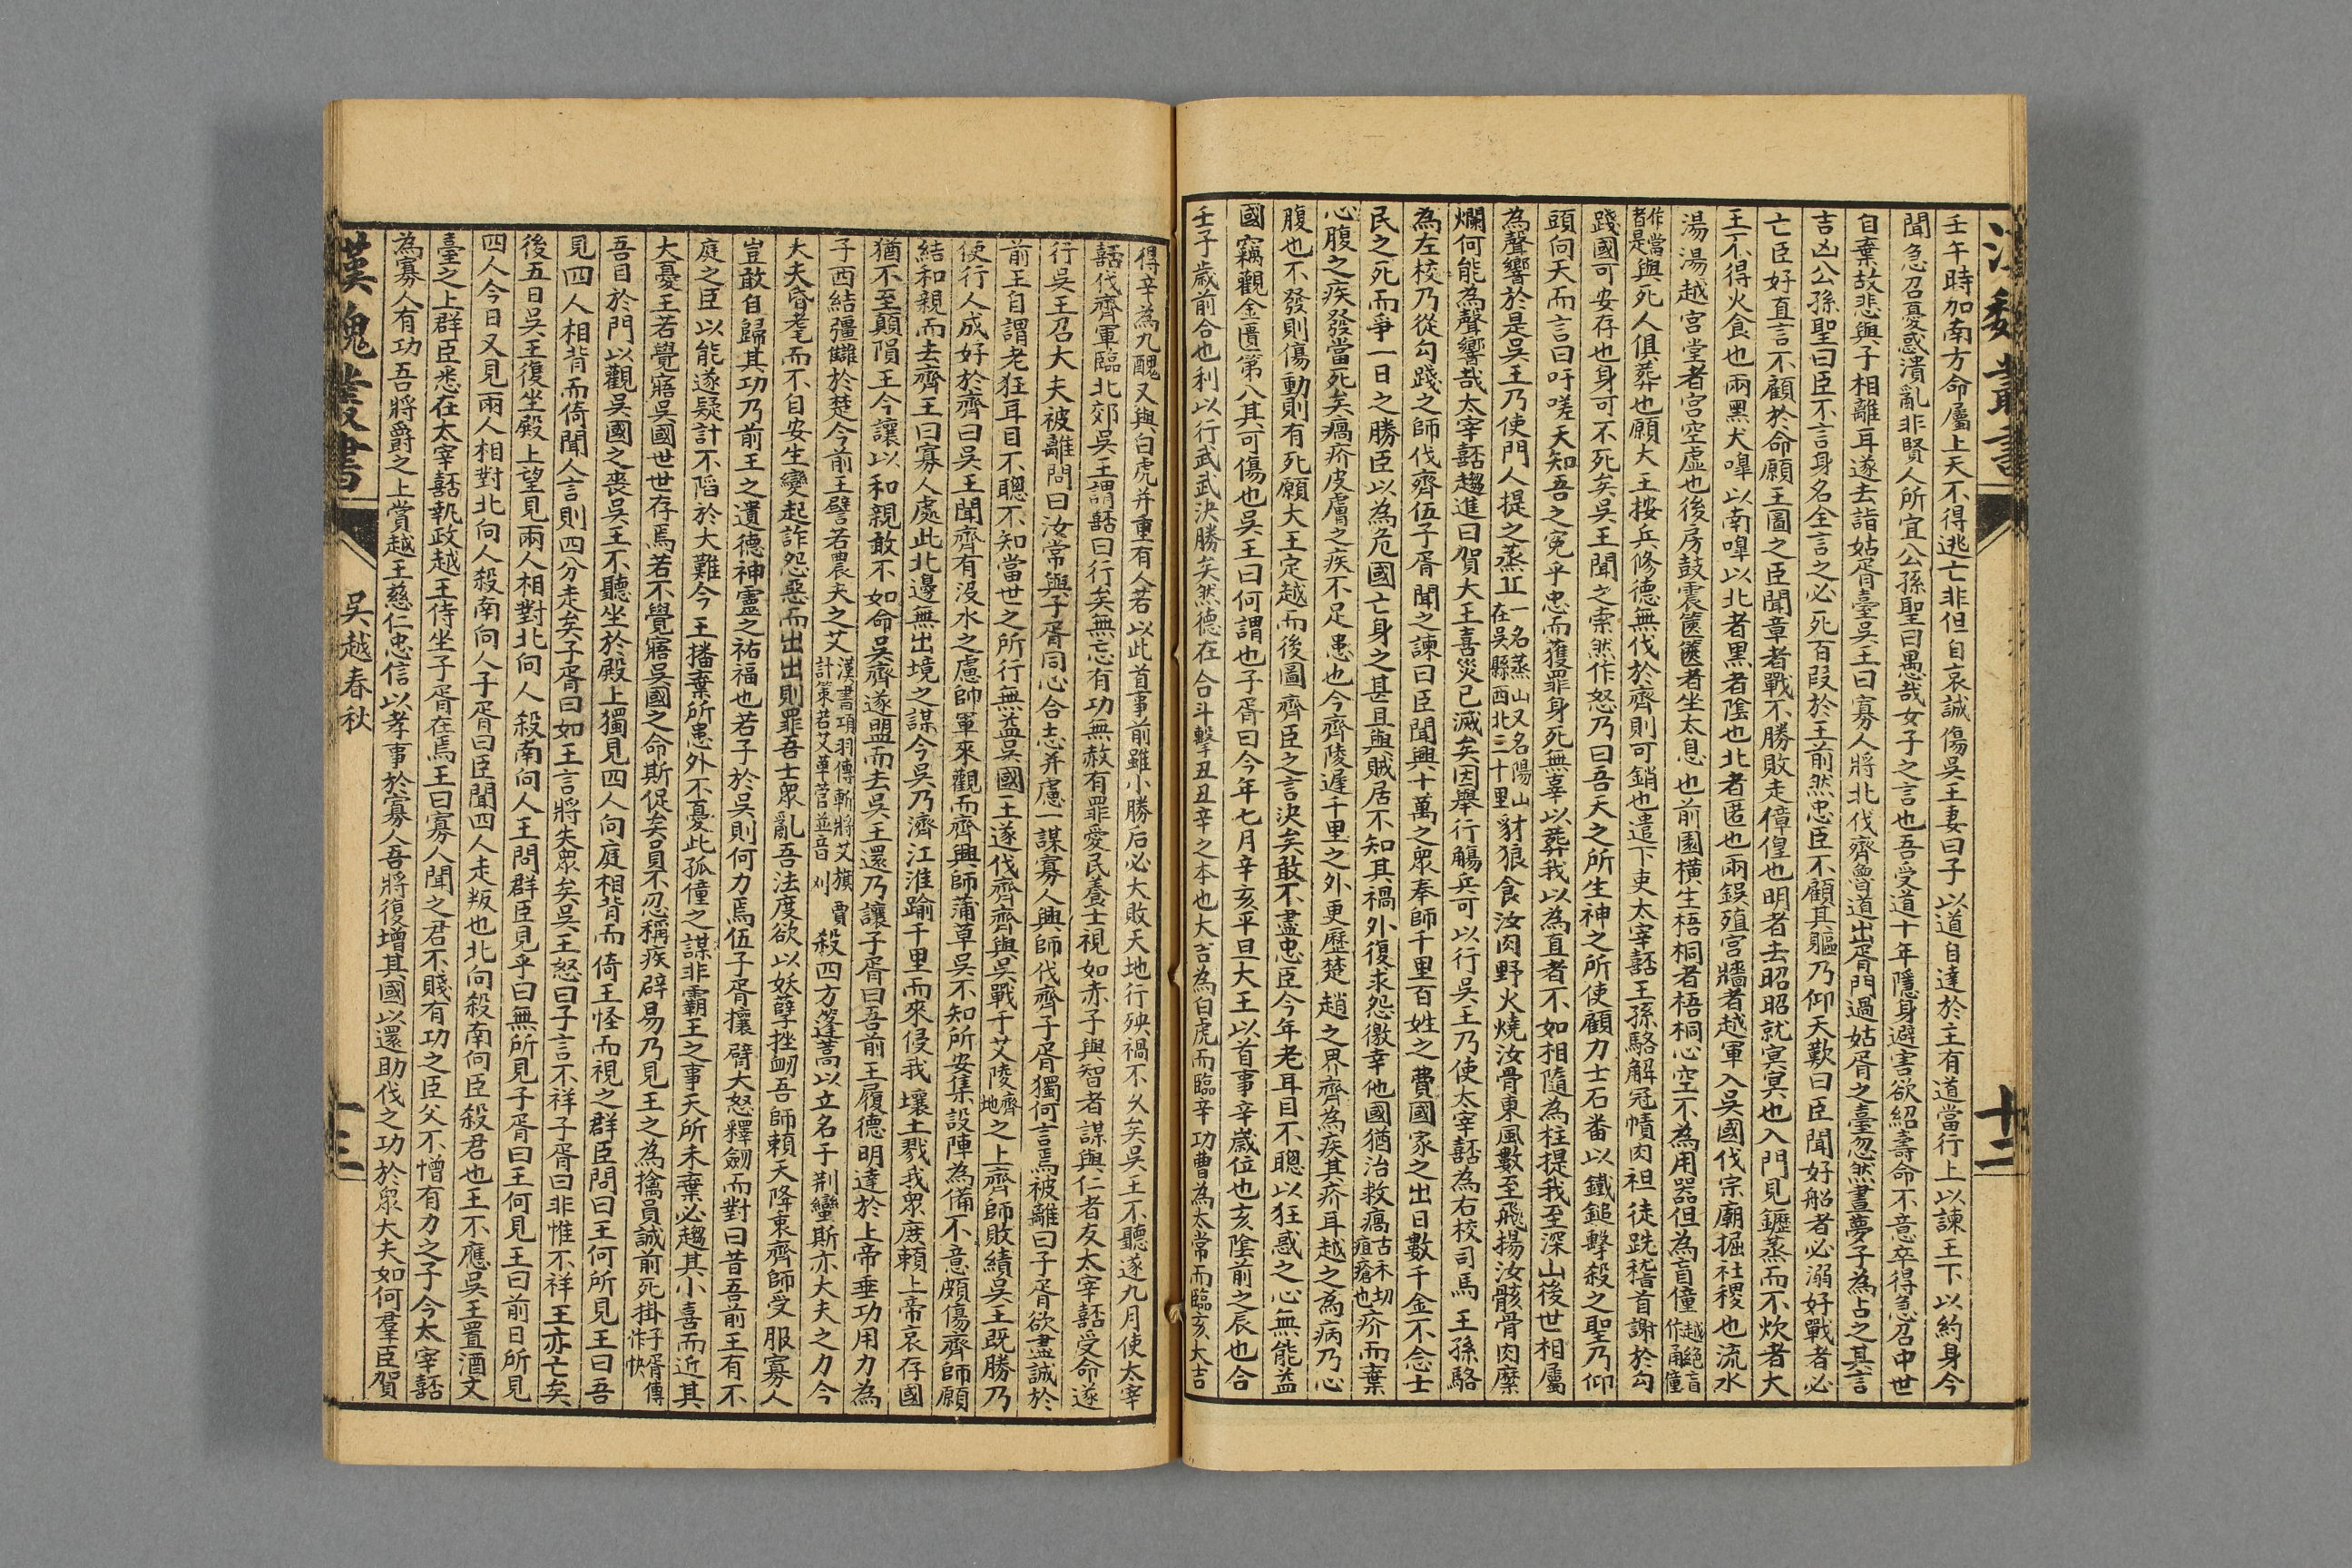 漢魏叢書
十二
壬午時加南方命屬上天不得逃亡非但自哀誠傷吳王妻曰子以道自達於主有道當行上以諫王下以約身今
聞急召憂惑潰亂非賢人所宜公孫聖曰愚哉女子之言也吾受道十年隱身避害欲紹壽命不意卒得急召中世
自棄故悲與子相離耳遂去詣姑胥臺吳王曰寡人將北伐齊魯道出胥門過姑胥之臺忽然晝夢子為占之其言
吉凶公孫聖曰臣不言身名全言之必死百段於王前然忠臣不顧其軀乃仰天歎曰臣聞好船者必溺好戰者必
亡臣好直言不顧於命願王圖之臣聞章者戰不勝敗走傽偟也明者去昭昭就冥冥也入門見鬲蒸而不炊者大
王不得火食也兩黑犬嘷以南嘷以北者黑者陰也北者匿也兩鋘殖宮牆者越軍入吳國伐宗廟掘社稷也流水
湯湯越宮堂者宮空虛也後房鼓震篋篋者坐太息也前園橫生梧桐者梧桐心空不為用器但為盲僮越絕盲作甬僮
作當者是與死人俱葬也願大王按兵修德無伐於齊則可銷也遣下吏太宰嚭王孫駱解冠幘肉袒徒跣稽首謝於勾
踐國可安存也身可不死矣吳王聞之索然作怒乃曰吾天之所生神之所使顧力士石番以鐵鎚擊殺之聖乃仰
頭向天而言曰吁嗟天知吾之冤乎忠而獲罪身死無辜以葬我以為直者不如相隨為柱提我至深山後世相屬
為聲響於是吳王乃使門人提之蒸丘一名蒸山又名陽山在吳縣西北三十里豺狼食汝肉野火燒汝骨東風數至飛揚汝骸骨肉縻
爛何能為聲響哉太宰嚭趨進曰賀大王喜災已滅矣因舉行觴兵可以行吳王乃使太宰嚭為右校司馬王孫駱
為左校乃從勾踐之師伐齊伍子胥聞之諫曰臣聞興十萬之眾奉師千里百姓之費國家之出日數千金不念士
民之死而爭一日之勝臣以為危國亡身之甚且與賊居不知其禍外復求怨徼幸他國猶治救瘑古禾切疽瘡也疥而棄
心腹之疾發當死矣瘑疥皮膚之疾不足患也今齊陵遲千里之外更歷楚趙之界齊為疾其疥耳越之為病乃心
腹也不發則傷動則有死願大王定越而後圖齊臣之言決矣敢不盡忠臣今年老耳目不聰以狂惑之心無能益
國竊觀金匱第八其可傷也吳王曰何謂也子胥曰今年七月辛亥平旦大王以首事辛歲位也亥陰前之辰也合
壬子歲前合也利以行武武決勝矣然德在合斗擊丑丑辛之本也大吉為白虎而臨辛功曹為太常而臨亥大吉
得辛為九醜又與白虎并重有人若以此首事前雖小勝后必大敗天地行殃禍不久矣吳王不聽遂九月使太宰
嚭伐齊軍臨北郊吳王謂嚭曰行矣無忘有功無赦有罪愛民養士視如赤子與智者謀與仁者友太宰嚭受命遂
行吳王召大夫被離問曰汝常與子胥同心合志并慮一謀寡人興師伐齊子胥獨何言焉被離曰子胥欲盡誠於
前王自謂老狂耳目不聰不知當世之所行無益吳國王遂伐齊齊與吳戰于艾陵齊地之上齊師敗績吳王既勝乃
使行人成好於齊曰吳王聞齊有沒水之慮帥軍來觀而齊興師蒲草吳不知所安集設陣為備不意頗傷齊師願
結和親而去齊王曰寡人處此北邊無出境之謀今吳乃濟江淮踰千里而來侵我壤土戮我眾庶賴上帝哀存國
猶不至顛隕王今讓以和親敢不如命吳齊遂盟而去吳王還乃讓子胥曰吾前王履德明達於上帝垂功用力為
子西結彊讎於楚今前王譬若農夫之艾漢書項羽傳斬將艾旗賈計策若艾草菅並音刈殺四方蓬蒿以立名于荆蠻斯亦大夫之力今
大夫昏耄而不自安生變起詐怨惡而出出則罪吾士眾亂吾法度欲以妖孽挫衂吾師賴天降衷齊師受服寡人
豈敢自歸其功乃前王之遺德神靈之祐福也若子於吳則何力焉伍子胥攘臂大怒釋劒而對曰昔吾前王有不
庭之臣以能遂疑計不陷於大難今王播棄所患外不憂此孤僮之謀非霸王之事天所未棄必趨其小喜而近其
大憂王若覺寤吳國世世存焉若不覺寤吳國之命斯促矣員不忍稱疾辟易乃見王之為擒員誠前死掛子胥傳作抉
吾目於門以觀吳國之喪吳王不聽坐於殿上獨見四人向庭相背而倚王怪而視之群臣問曰王何所見王曰吾
見四人相背而倚聞人言則四分走矣子胥曰如王言將失眾矣吳王怒曰子言不祥子胥曰非惟不祥王亦亡矣
後五日吳王復坐殿上望見兩人相對北向人殺南向人王問群臣見乎曰無所見子胥曰王何見王曰前日所見
四人今日又見兩人相對北向人殺南向人子胥曰臣聞四人走叛也北向殺南向臣殺君也王不應吳王置酒文
臺之上群臣悉在太宰嚭執政越王侍坐子胥在焉王曰寡人聞之君不賤有功之臣父不憎有力之子今太宰嚭
為寡人有功吾將爵之上賞越王慈仁忠信以孝事於寡人吾將復增其國以還助伐之功於眾大夫如何羣臣賀
漢魏叢書
吳越春秋
十三